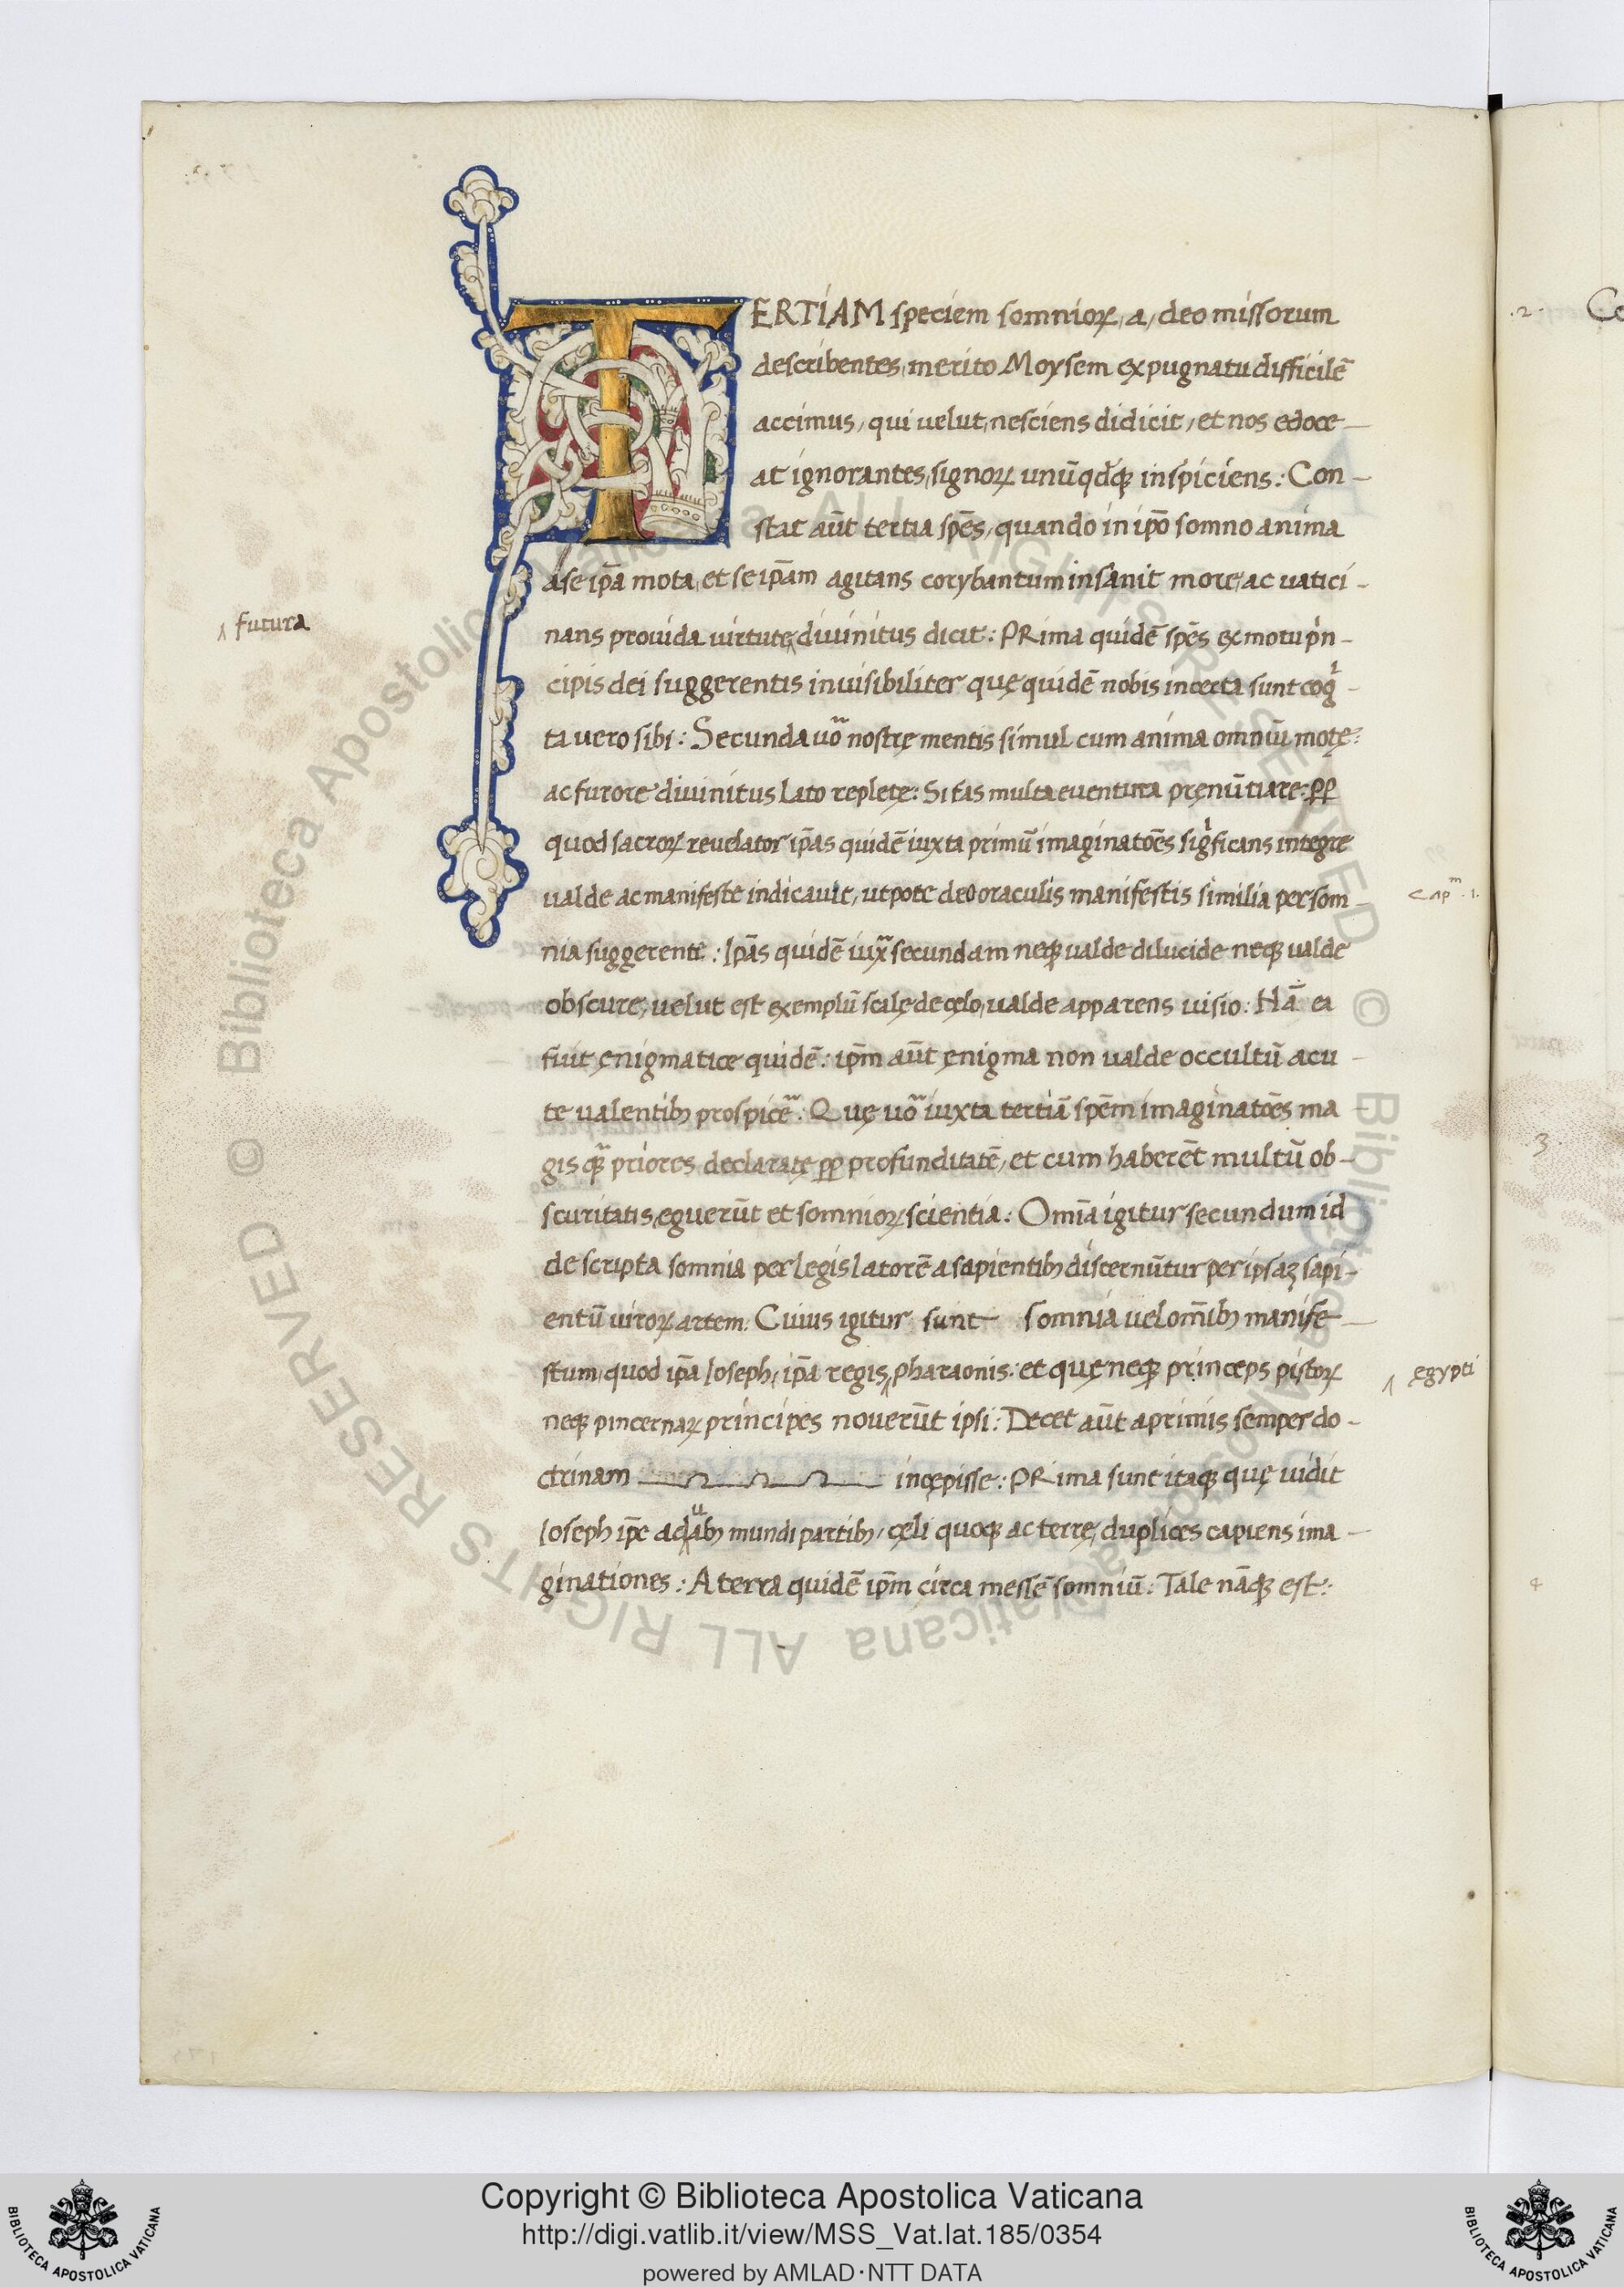 TERTIAM speciem somnioꝝ, a, deo missorum
describentes, merito Moysem expugnatu difficilē
accimus, qui uelut, nesciens didicit, et nos edoce-
at ignorantes, signoꝝ unūqđqꝫ inspiciens: Con-
stat aūt tertia spēs, quando in ip̄o somno anima
a se ip̄a mota, et se ip̄am agitans corybantum insanit more, ac uatici-
futura
nans prouida uirtute, diuinitus dicit: PRima quidē spēs ex motu pͥn-
cipis dei suggerentis inuisibiliter quę quidē nobis incerta sunt cogͥ-
ta uero sibi: Secunda uoᷓ nostrę mentis simul cum anima omniū motę:
ac furore diuinitus lato repletę: Si fas multa euentura prenūtiare: ꝓꝑ
quod sacroꝝ reuelator ip̄as quidē iuxta primū imaginatōēs sigͥficans integre
ualde ac manifeste indicauit, utpote deo oraculis manifestis similia per som-
capᵐ .1.
nia suggerente: Ip̄as quidē iuxᷓ secundam neqꝫ ualde dilucide neqꝫ ualde
obscure, uelut est exemplū scalę de cęlo, ualde apparens uisio: Hā ea
fuit ęnigmatice quidē: ip̄m aūt ęnigma non ualde occultū acu-
te ualentibꝫ prospiceᷓ: Quę uoᷓ iuxta tertiā spēm imaginatōēs ma-
gis qꝫᷓ priores declaratę ꝓꝑ profunditatē, et cum haberēt multū ob-
scuritatis, eguerūt et somnioꝝ scientia: Omīa igitur secundum id
descripta somnia per legislatorē a sapientibꝫ discernūtur per ipsaꝫ sapi-
entū uiroꝝ artem. Cuius igitur sunt somnia uel om̄ibꝫ manife-
stum, quod ip̄a Ioseph, ip̄a regis pharaonis: et quę neqꝫ princeps pistoꝝ
ęgypti
neqꝫ pincernaꝝ principes nouerūt ipsi: Decet aūt a primis semper do-
ctrinam incępisse: PRima sunt itaqꝫ quę uidit
Ioseph ip̄e a dͧabꝫ mundi partibꝫ, cęli quoqꝫ ac terrę, duplices capiens ima-
ginationes: A terra quidē ip̄m circa messē somniū: Tale nāqꝫ est:
.2.
3.
4
Copyright © Biblioteca Apostolica Vaticana
http://digi.vatlib.it/view/MSS_Vat.lat.185/0354
powered by AMLAD·NTT DATA
BIBLIOTECA APOSTOLICA VATICANA
BIBLIOTECA APOSTOLICA VATICANA
© Biblioteca Apostolica Vaticana ALL RIGHTS RESERVED © Biblioteca Apostolica Vaticana ALL RIGHTS RESERVED